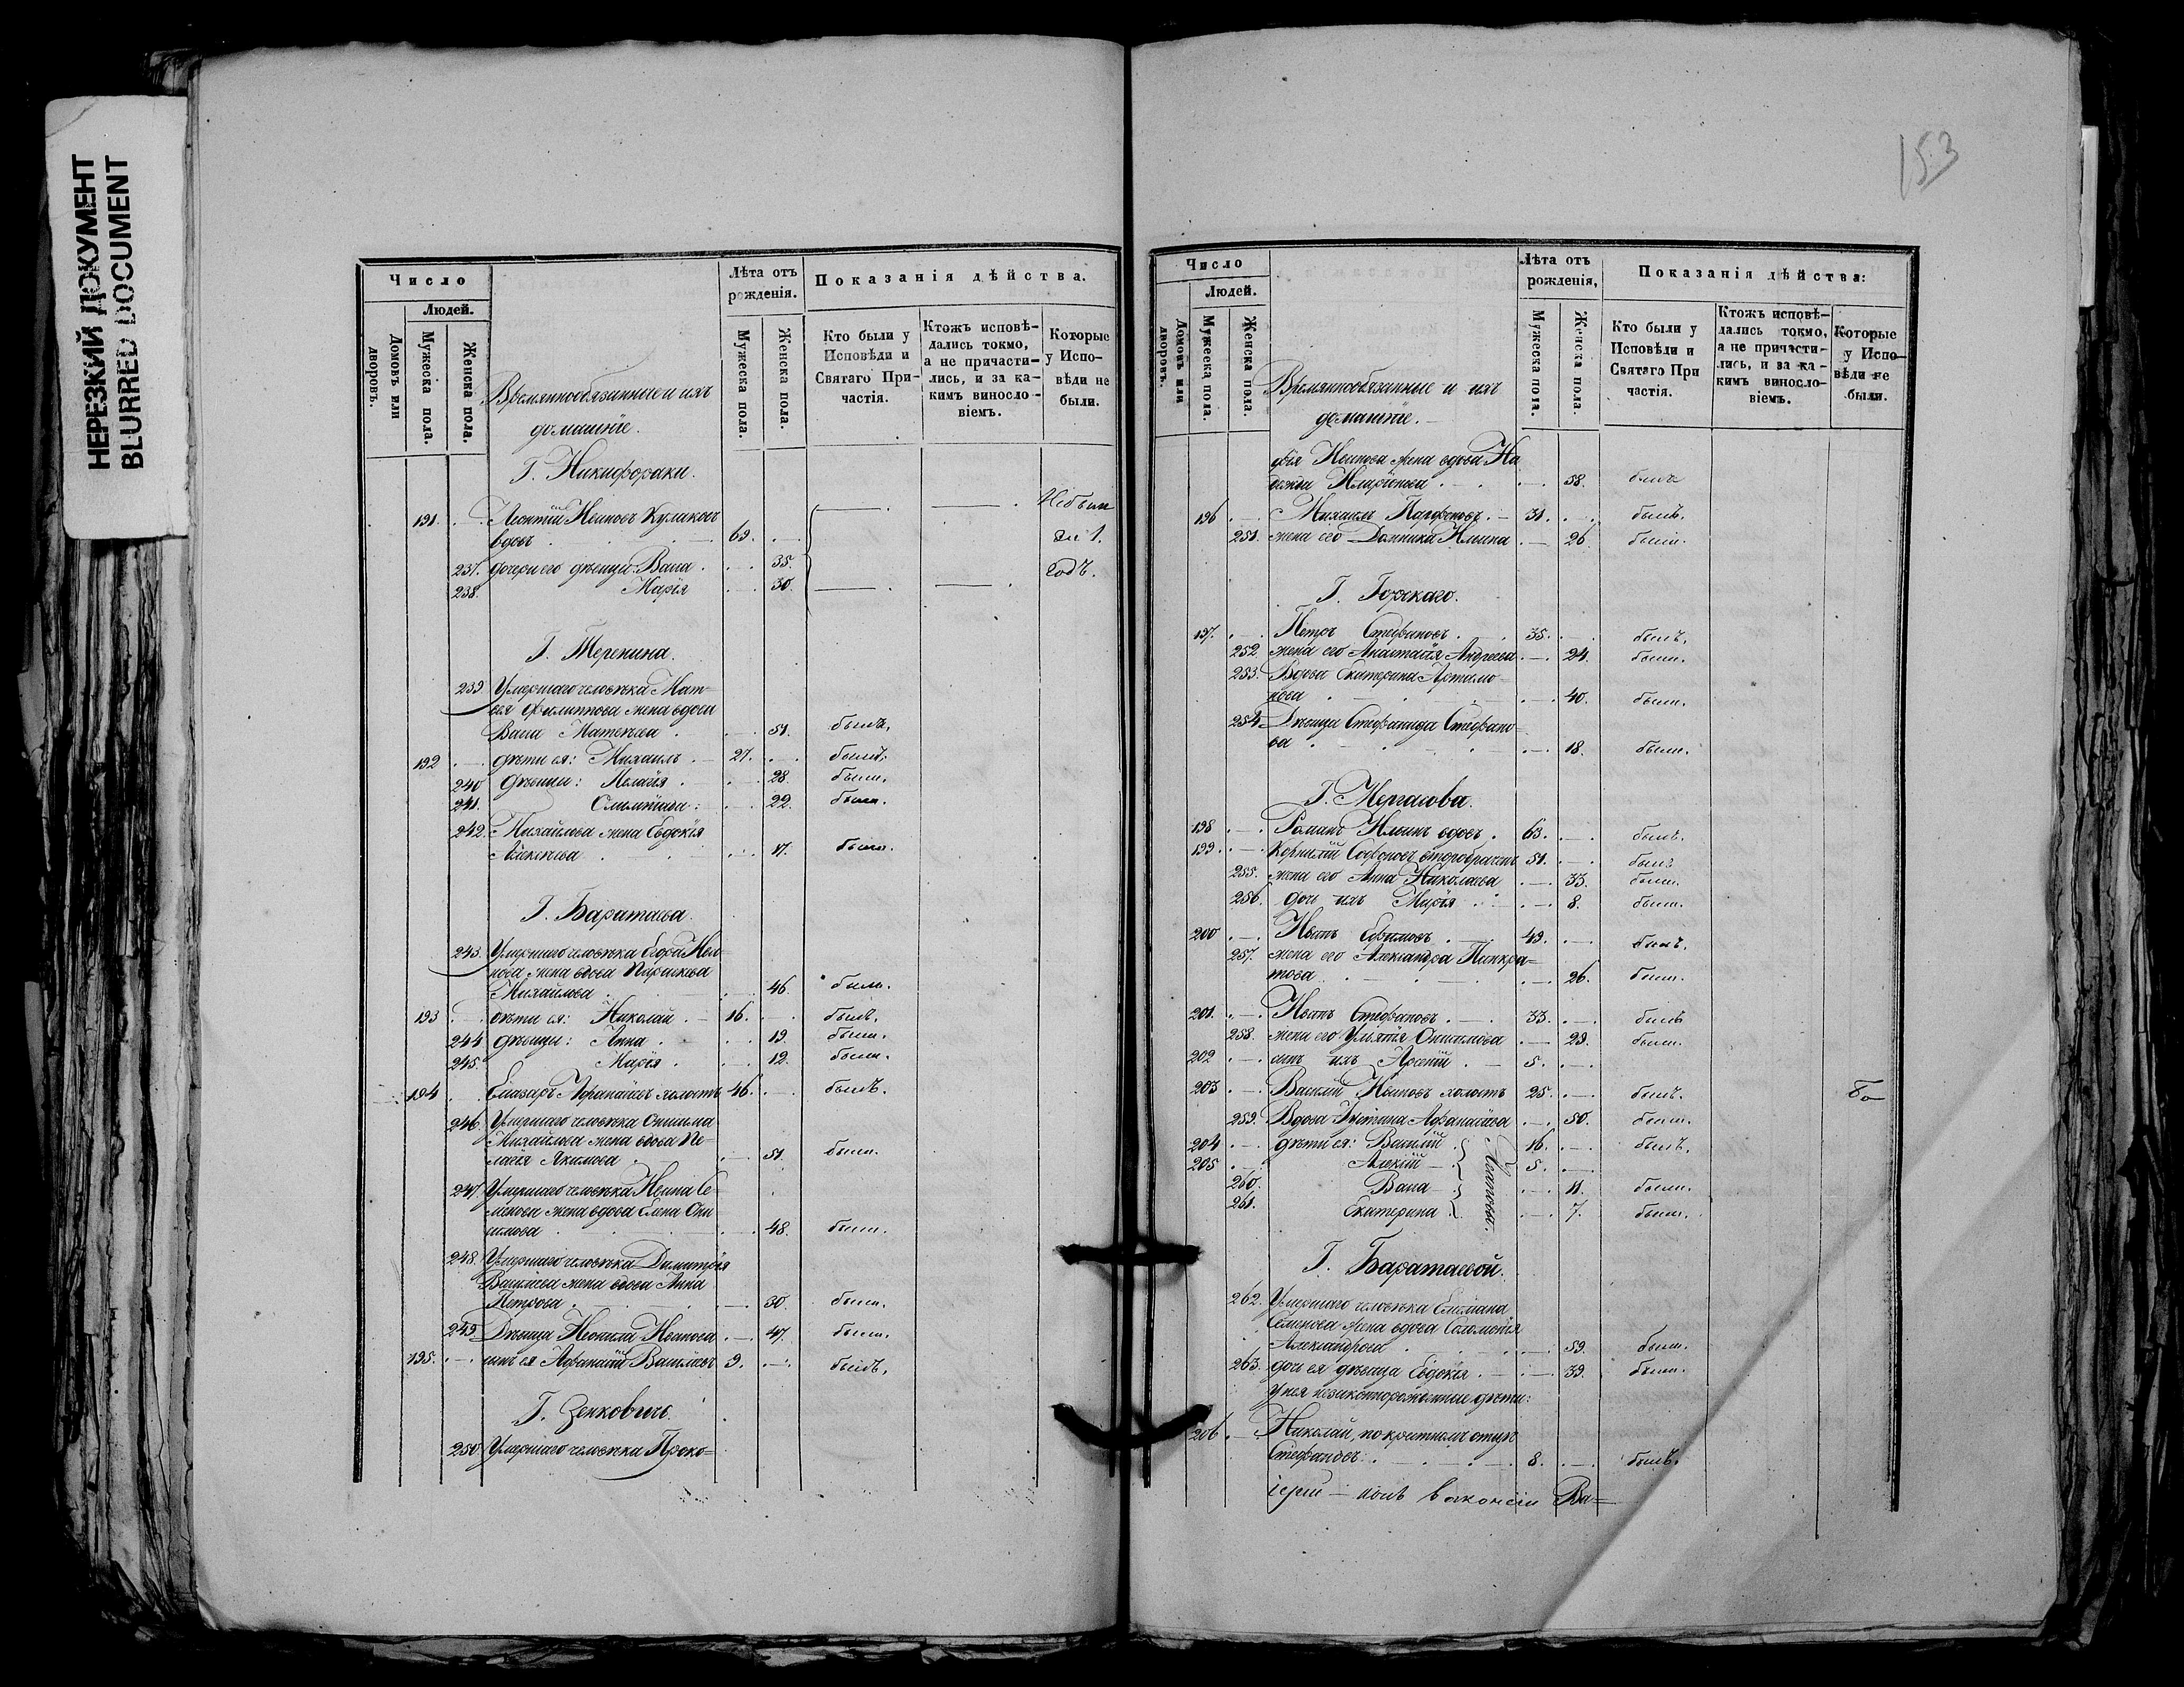 НЕРЕЗКИЙ ДОКУМЕНТ
BLURRED DOCUMENT
Число
Людей.
Домовъ или дворовъ.
Мужеска пола.
Женска пола.
Временнообязанные и ихъ
домашніе.
Лѣта отъ
рожденія.
Мужеска пола.
Женска пола.
Показанія дѣйства.
Кто были у
Исповѣди и
Святаго При-
частія.
Ктожъ исповѣ-
дались токмо,
а не причасти-
лись, и за ка-
кимъ виносло-
віемъ.
Которые
у Испо-
вѣди не
были.
Г. Никифораки.
191. Леонтій Ивановъ Куликовъ
вдовъ 69.
237. дочери его дѣвицы: Васса 35.
238. Марія 30.
Небыли
1.
годъ.
Г. Теренина.
239 Умершаго человѣка Мат-
вея Филиппова жена вдова
Васса Матвѣева 51. была.
192 дѣти ея: Михаилъ 27. былъ.
240 дѣвицы: Пелагія 28. была.
241. Олимпіада: 22. была.
242. Михайлова жена Евдокія
Алексѣева 17. была.
Г. Баратаева.
243. Умершаго человѣка Егора Ива-
нова жена вдова Параскева
Михайлова 46. была.
193 дѣти ея: Николай 16. былъ.
244 дѣвицы: Анна 19. была.
245. Марія 12. была.
194 Елазаръ Афанасіевъ холостъ 46. былъ.
246 Умершаго человѣка Онисима
Михайлова жена вдова Пе-
лагія Якимова 51. была.
247. Умершаго человѣка Ивана Се-
менова жена вдова Елена Они
симова 48. была.
248. Умершаго человѣка Димитрія
Васильева жена вдова Анна
Петрова 30. была.
249 Дѣвица Неонила Иванова 47. была.
195. сынъ ея Афанасій Васильевъ 9. былъ.
Г. Зенковичъ.
250 Умершаго человѣка Проко-
153
Число
Людей.
Домовъ или дворовъ.
Мужеска пола.
Женска пола.
Временнообязанные и ихъ
домашніе.
Лѣта отъ
рожденія,
Мужеска пола.
Женска пола.
Показанія дѣйства:
Кто были у
Исповѣди и
Святаго При
частія.
Ктожъ исповѣ-
дались токмо,
а не причасти-
лись, и за ка-
кимъ винсло-
віемъ.
Которые
у Испо-
вѣди не
были.
фія Иванова жена вдова На
дежда Иларіонова 58. была
196 Михаилъ Парфеновъ 31. былъ.
251. жена его Домника Ильина 26 была.
Г. Горскаго.
197. Петръ Стефановъ 35. былъ.
252. жена его Анастасія Андреева 24. была.
253. Вдова Екатерина Артамо-
нова 40. была.
254 Дѣвица Стефанида Стефано-
ва 18. была.
Г. Мергасова.
198 Романъ Ильинъ вдовъ 63. былъ.
199. Корнилій Софоновъ второбрачн. 51. былъ
255. жена его Анна Николаева 33. была.
256. дочь ихъ Марія 8. была.
200 Иванъ Ефимовъ 49. былъ.
257. жена его Александра Панкра-
това 26. была.
201. Иванъ Стефановъ 33. былъ
258. жена его Ульянія Онисимова 29. была.
202 сынъ ихъ Арсеній 5.
203 Василій Ивановъ холостъ 25. былъ.
259. Вдова Іустина Афанасіева 50. была.
204 дѣти ея: Василій 16. былъ.
205 Алексій 5.
260. Васса 11. была.
261. Екатерина 7. была.
Г. Баратаевой.
262. Умершаго человѣка Емеліана
Семенова жена вдова Соломонія
Александрова 59. была.
263. дочь ея дѣвица Евдокія 39. была.
У нея незаконнорожденные дѣти:
206 Николай, по крестномъ отцѣ
Стефановъ 8. былъ.